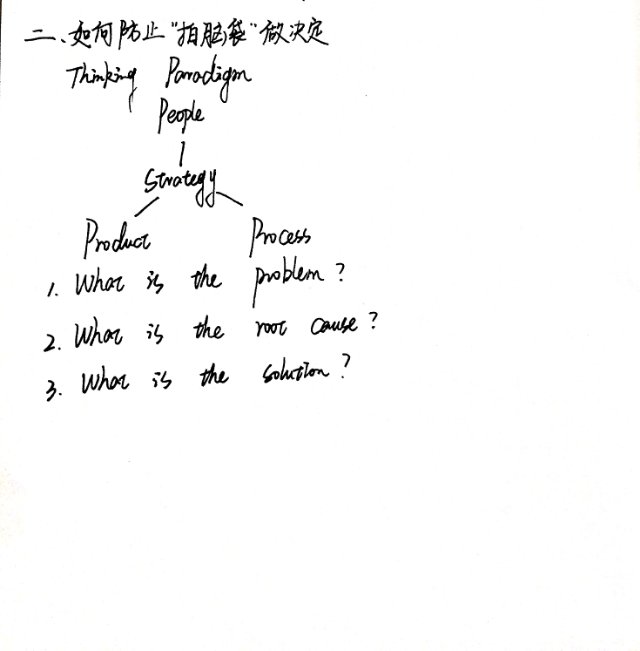 二、如何防止"拍脑袋"做决定
Thinking Paradigm
People
Strategy
Product Process
1. What is the problem?
2. What is the root cause?
3. What is the solution?